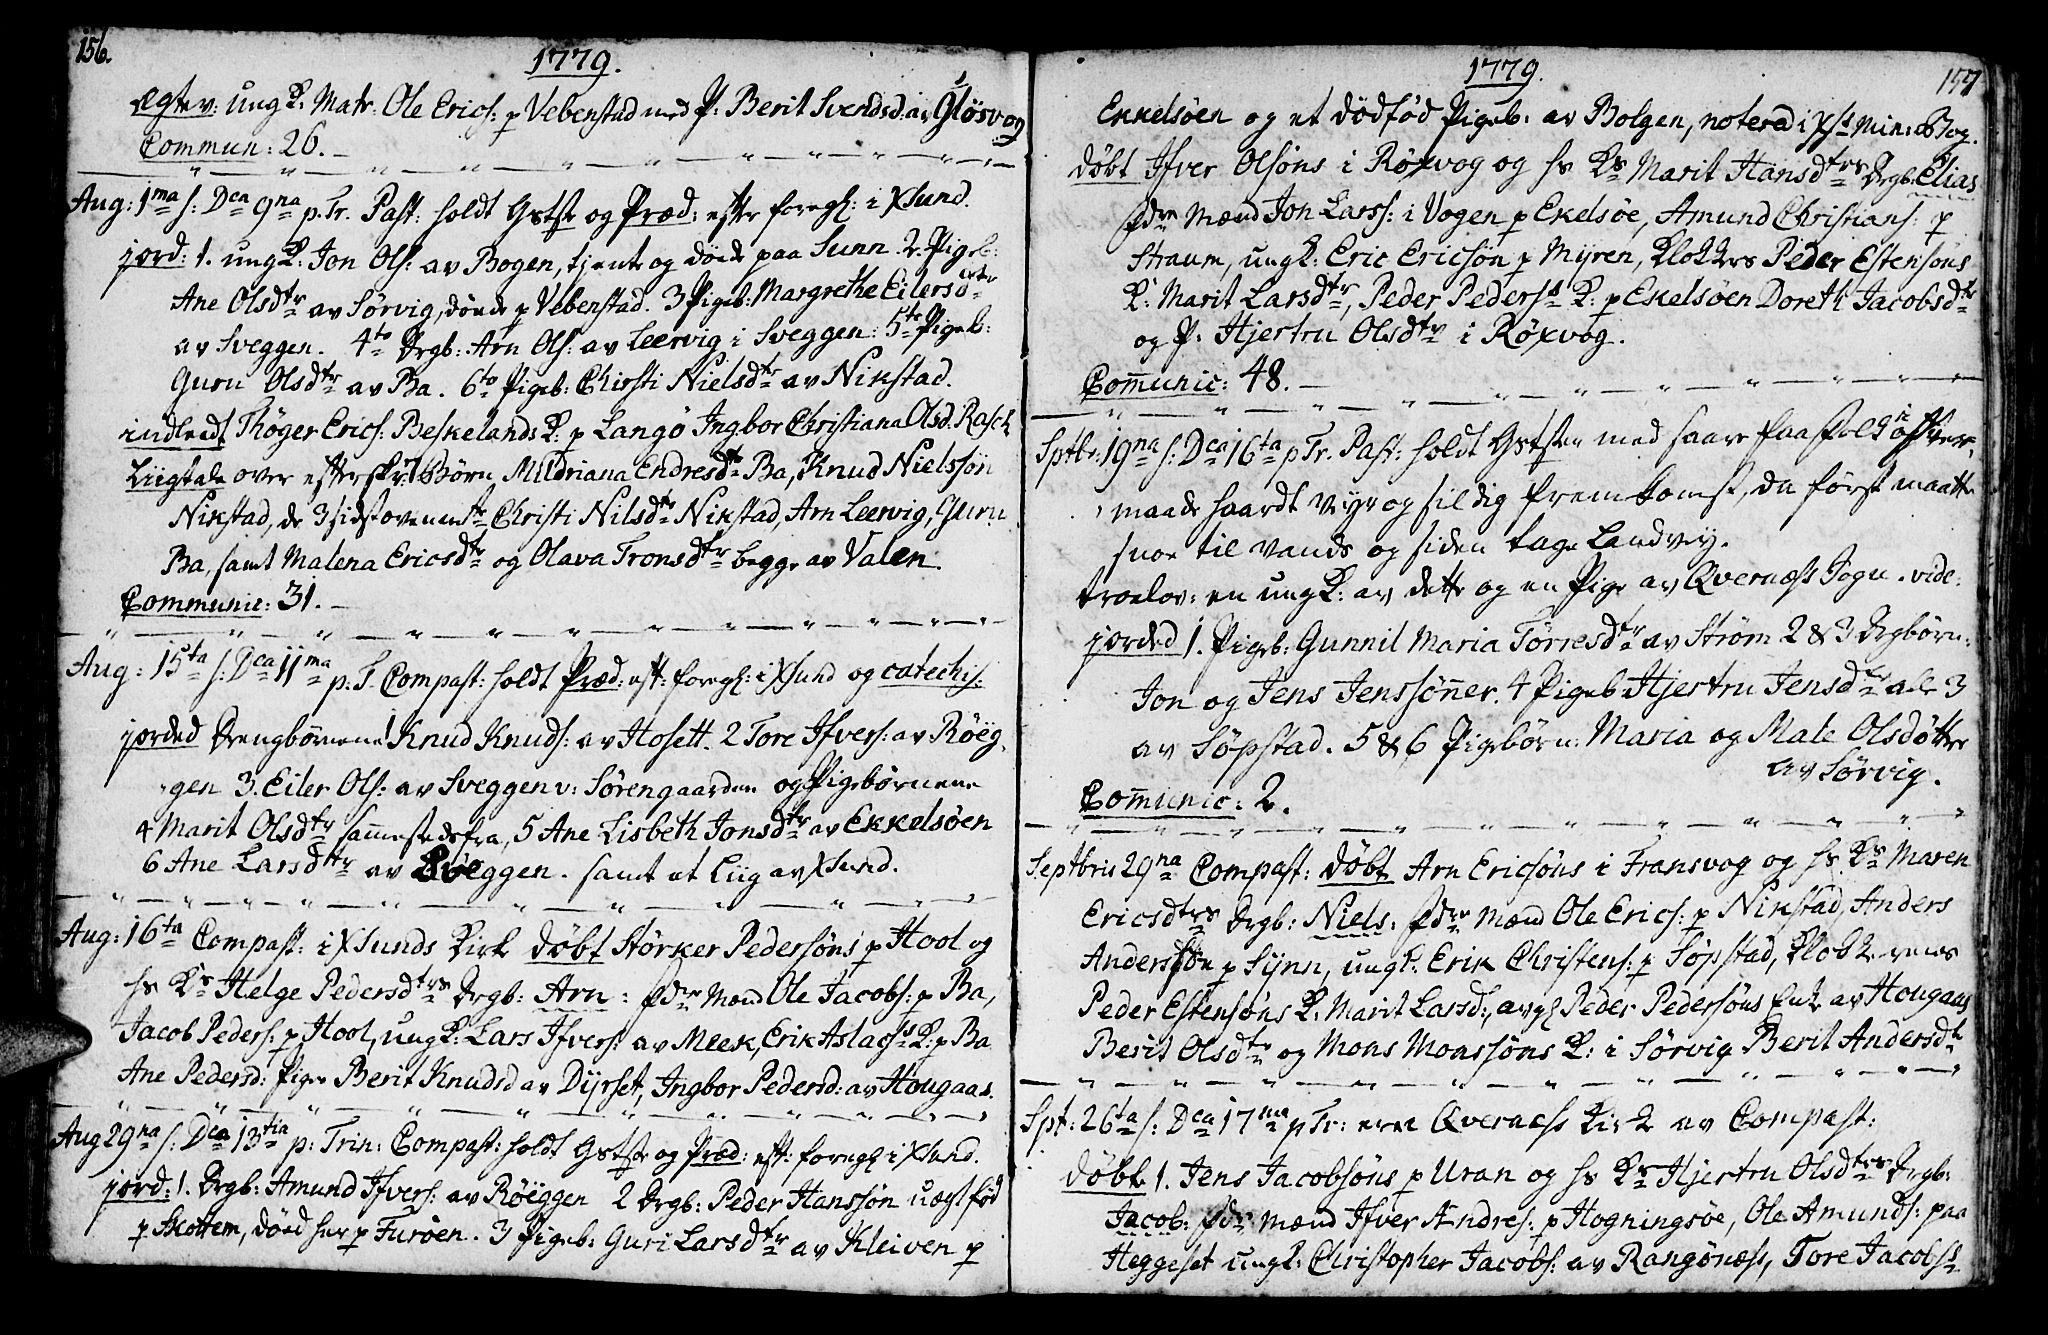 156.
1779.
Ægtev: ungK: Matr: Ole Erics: p Vebenstad med P: Berit Svendsd: av Gløsvog
Commun: 26.
Aug: 1ma s: Dca 9na p. Tr. Past: holdt Gstste og Præd: efter foregl: i Xsund.
jord: 1. ungK: Jon Ols: av Bogen, tjente og døde paa Sunn. 2. Pigeb:
Ane Olsdtr av Sørvig, døde p Vebenstad. 3 Pigeb: Margrethe Eilersdtr
av Sveggen. 4to Drgb: Arn Ols: av Leervig i Sveggen: 5te Pigeb:
Guru Olsdtr av Ba. 6te Pigeb: Christi Nielsdtr av Nikstad.
indledt Thøger Erics: Beskelands K: p Langø Ingbor Christiana Olsd. Rasch
Liigtale over efterskr: Børn Mildriana Endresdtr Ba, Knud Nielssøn
Nikstad, de 3 sidst ovenmte Christi Nilsdtr Nikstad, Arn Leervig, Guru
Ba, samt Malena Ericsdtr og Olava Tronsdtr begge av Valen.
Communic: 31.
Aug: 15ta s: Dca 11ma p. T. Compast: holdt Præd: eft: foregl: i Xsund og catechis:
jorded Drengbørnene 1 Knud Knuds: av Hosett. 2 Tore Ifvers: av Røeg,
gen 3. Eiler Ols: av Sveggen v: Sørengaarden og Pigebørnene
4 Marit Olsdtr sammestedsfra, 5 Ane Lisbeth Jonsdtr av Ekkelsøen
6 Ane Larsdtr av Sveggen. samt et Liig av Xsund.
Aug: 16ta Compast: i Xsunds Kirke døbt Størker Pedersøns p Hool og
hs Ks Helge Pedersdtrs Drgb: Arn: Fdre Mænd Ole Jacobs: p Ba,
Jacob Peders: p Hool, ungK: Lars Ifvers: av Meek, Erik Aslachs K: p Ba
Ane Pedersd: Pige Berit Knudsd av Dyrset, Ingbor Pedersd: av Hougaas.
Aug 29na s: Dca 13tia p: Trin: Compast: holdt Gstste og Præd: eft: foregl i Xsund.
jord: 1. Drgb: Amund Ifvers: av Røeggen 2 Drgb: Peder Hanssøn uægtfød
p Skottem, død her p Furøen. 3 Pigeb: Guri Larsdtr av Kleiven p
1779.
157
Ekkelsøen og et dødfød Pigeb: av Bolgen, notered i Xst Min: Bog.
døbt Ifver Olsøns i Røxvog og hs Ks Marit Hansdtrs Drgb: Elias
Fdre Mænd Jon Larss: i Vogen p Ekelsøe, Amund Christians: p
Straum, ungK: Eric Ericsøn p Myren, Klokkers Peder Estensøns
K: Marit Larsdtr, Peder Peders K: p Ekelsøen Doreth Jacobsdtr
og P. Hjertru Olsdtr i Røxvog.
Communic: 48.
Sptbr: 19na s: Dca 16ta p Tr. Past: holdt Gstste med saare faa Folk i øfver,
maade haardt Veyr og sildig fremkomst, da først maatte
snoe til Vands og siden tage Landvey.
troelov: en ungK: av dette og en Pige av Qvernæss Sogn. vide:
jorded 1. Pigeb: Gunnil Maria Torresdtr av Strøm 2 & 3 Drgbørn:
Jon og Jens Jenssønner. 4 Pigeb Hjertru Jensdtr alle 3
av Søpstad. 5 & 6 Pigebørn: Maria og Male Olsdøttre
av Sørvig.
Communic: 2.
Septbris 29na Compast: døbt Arn Ericsøns i Fransvog og hs Ks Maren
Ericsdtrs Drgb: Niels: Fdre Mænd Ole Erics: p Nikstad, Anders
Anderssøn p Synn, ungK: Erik Christens: p Søpstad, Klokkerens
Peder Estensøns K: Marit Larsd:, avgl Peder Pedersøns Enke av Hougaas
Berit Olsdtr og Mons Monssøns K: i Sørvig Berit Andersdtr
Spt: 26ta s: Dca 17ma p Tr: ved Qvernæss Kirke av Compast:
døbt 1. Jens Jacobsøns p Uran og hs Ks Hjertru Olsdtrs Drgb:
Jacob: Fdre Mænd Ifver Andres: p Hogningsøe, Ole Amunds: paa
Heggeset ungK: Christopher Jacobs: av Rangønæss, Tore Jacobss